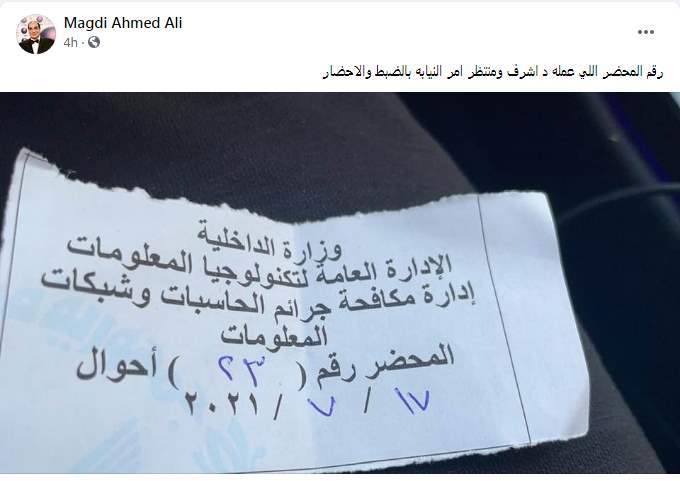 Magdi Ahmed Ali
4h
رقم المحضر اللي عمله د اشرف ومنتظر امر النيابه بالضبط والاحضار
وزارة الداخلية
الإدارة العامة لتكنولوجيا المعلومات
إدارة مكافحة جرائم الحاسبات وشبكات
المعلومات
المحضر رقم ( ٢٣ ) أحوال
١٧ / ٧ / ٢٠٢١